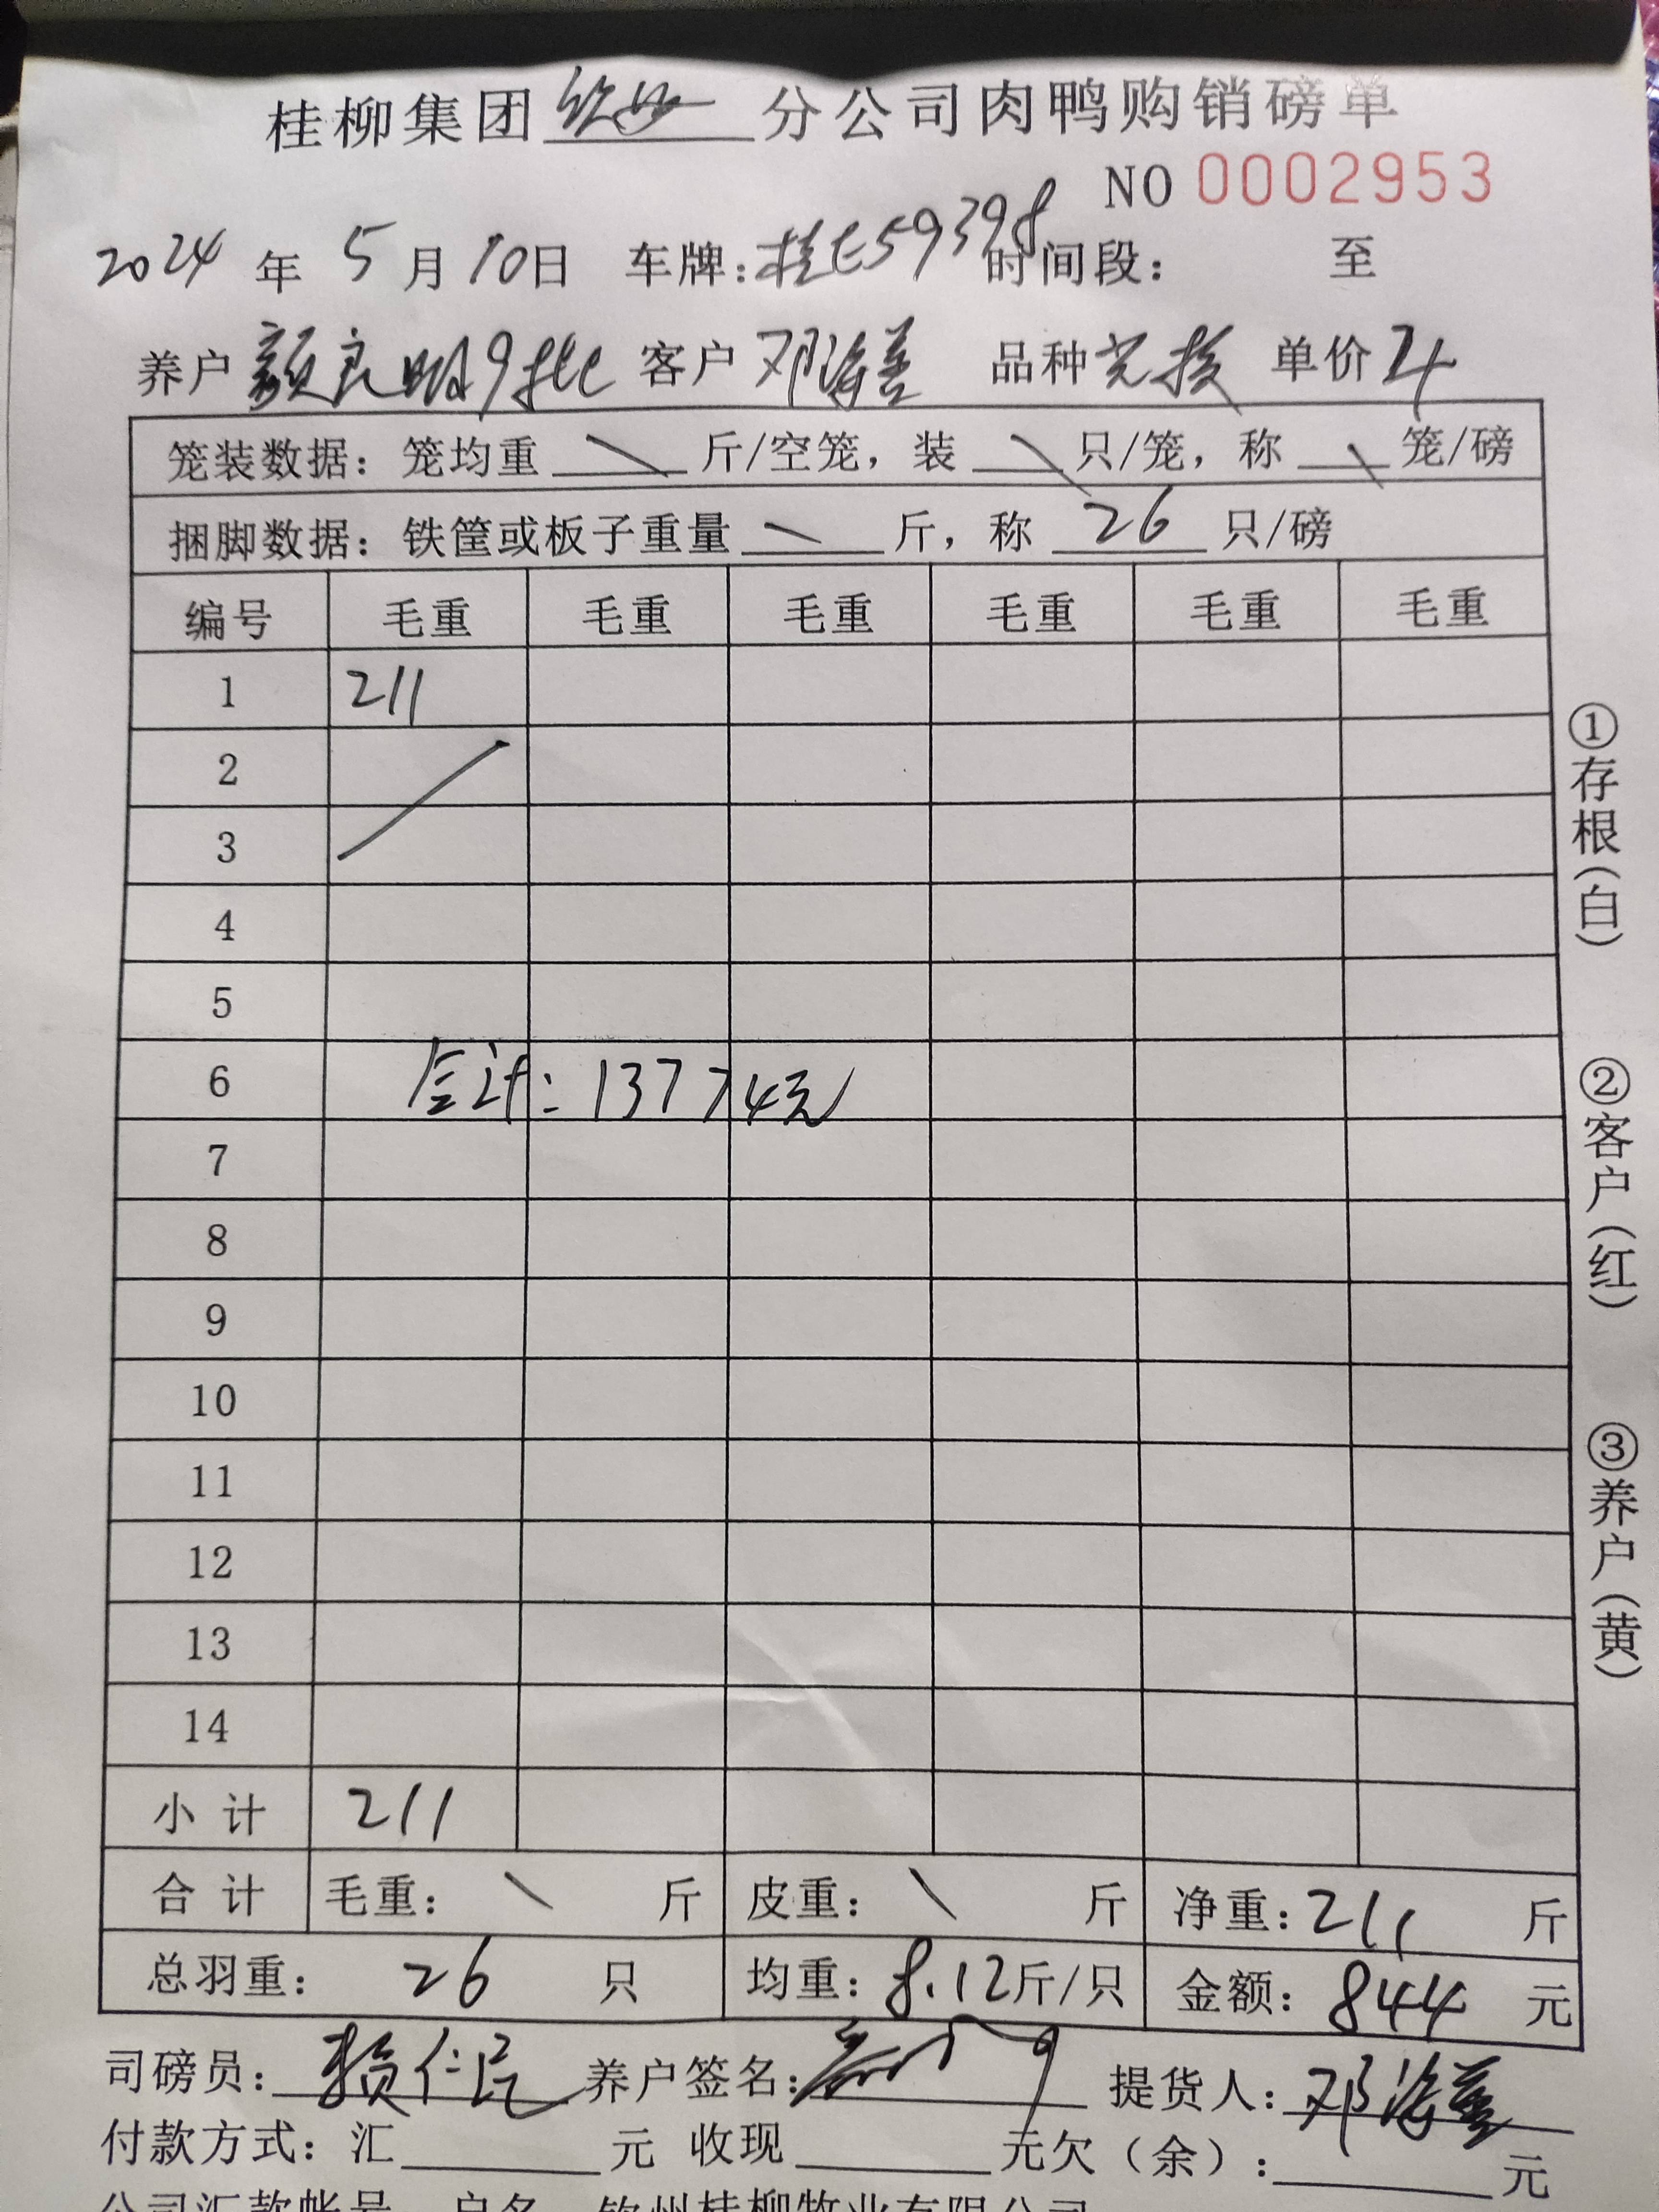 桂柳集团钦州分公司肉鸭购销磅单
NO 0002953
2024年5月10日 车牌:桂E59398 时间段: 至
养户 颜良明9批 客户 邓海善 品种 单价 4
笼装数据: 笼均重 \ 斤/空笼, 装 \ 只/笼, 称 \ 笼/磅
捆脚数据: 铁筐或板子重量 \ 斤, 称 26 只/磅
编号 毛重 毛重 毛重 毛重 毛重 毛重
1 211
2
3
4
5
6 合计: 13774元
7
8
9
10
11
12
13
14
小计 211
合计 毛重: \ 斤 皮重: \ 斤 净重: 211 斤
总羽重: 26 只 均重: 8.12斤/只 金额: 844 元
司磅员: 赖仁 养户签名: 提货人: 邓海善
付款方式: 汇 元 收现 元欠(余): 元
公司汇款帐号 户名 钦州桂柳牧业有限公司
①存根(白)
②客户(红)
③养户(黄)